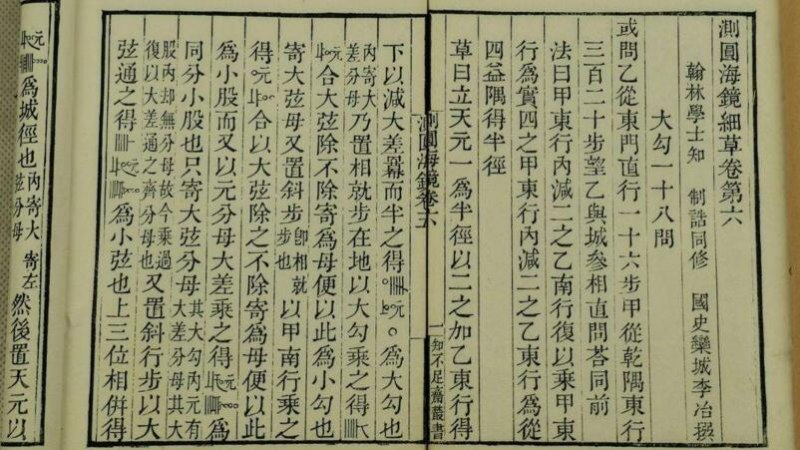 測圓海鏡細草卷第六
翰林學士知　制誥同修　國史欒城李冶撰
大勾一十八問
或問乙從東門直行一十六步甲從乾隅東行
三百二十步望乙與城參相直問荅同前
法曰甲東行內減二之乙南行復以乘甲東
行為實四之甲東行內減二之乙東行為從
四益隅得半徑
草曰立天元一為半徑以二之加乙東行得
測圓海鏡卷六
一
知不足齋叢書
下以減大差冪而半之得 為大勾也
內寄大差分母
乃置相就步在地以大勾乘之得
合大弦除不除寄為母便以此為小勾也
寄大弦母
又置斜步
卽相就步也
以甲南行乘之
得 合以大弦除之不除寄為母便以此
為小股而又以元分母大差乘之得
同分小股也只寄大弦分母
其大勾內元有大差分母其大
股內却無分母故今乘過復以大差通之齊分母也
又置斜行步以大
弦通之得 為小弦也上三位相併得
為城徑也
內寄大弦分母
寄左
然後置天元以